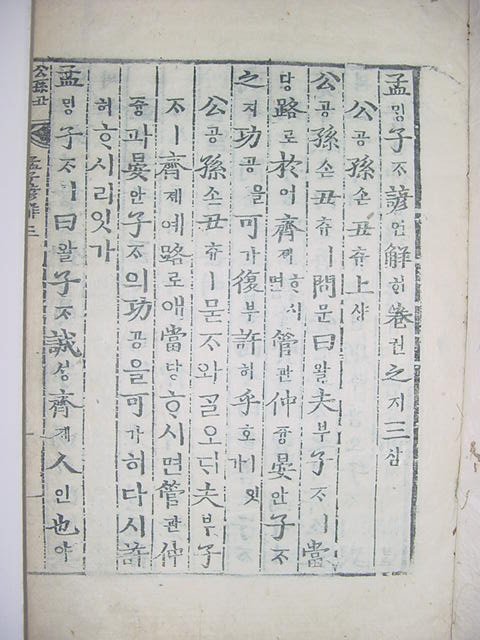 孟ᄆᆡᆼ子ᄌᆞ諺언解ᄒᆡ卷권之지三삼
公공孫손丑츄上샹
公공孫손丑츄ㅣ問문曰왈夫부子ᄌᆞㅣ當
당路로於어齊졔ᄒᆞ시면管관仲즁晏안子ᄌᆞ
之지功공을可가復부許허乎호잇가
公공孫손丑츄ㅣ묻ᄌᆞ와ᄀᆞᆯ오ᄃᆡ夫부子
ᄌᆞㅣ齊졔예路로애當당ᄒᆞ시면管관仲
즁과晏안子ᄌᆞ의功공을可가히다시許
허ᄒᆞ시리잇가
孟ᄆᆡᆼ子ᄌᆞㅣ曰왈子ᄌᆞ誠셩齊졔人인也야
公孫丑
孟子諺解三